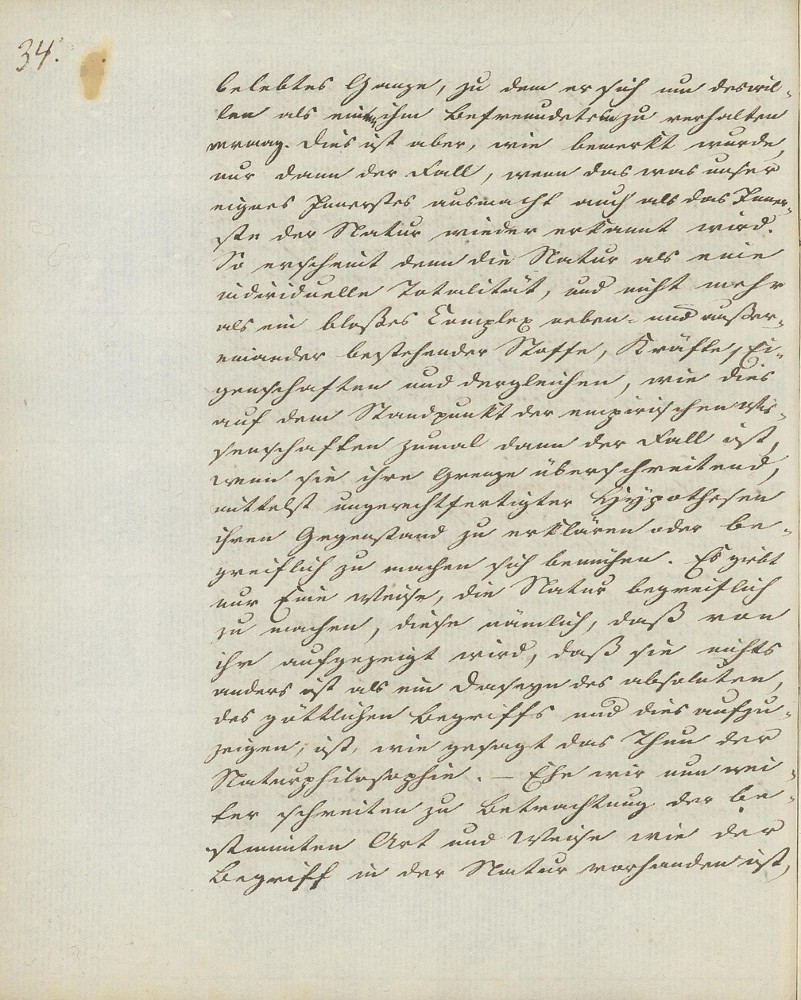 34.
belebtes Ganze, zu dem er sich um deswil-
len als einem ihm Befreundeten zu verhalten
vermag. Dies ist aber, wie bemerkt wurde,
nur dann der Fall, wenn das was unser
eignes Innerstes ausmacht auch als das Inner-
ste der Natur wieder erkannt wird.
So erscheint denn die Natur als eine
individuelle Totalität, und nicht mehr
als ein bloßes Complex neben- und außer-
einander bestehender Stoffe, Kräfte, Ei-
genschaften und dergleichen, wie dies
auf dem Standpunkt der empirischen Wis-
senschaften zumal dann der Fall ist,
wenn sie ihre Grenze überschreitend,
mittelst ungerechtfertigter Hypothesen
ihren Gegenstand zu erklären oder be-
greiflich zu machen sich bemühen. Es giebt
nur Eine Weise, die Natur begreiflich
zu machen, diese nämlich, daß von
ihr aufgezeigt wird, daß sie nichts
anders ist als ein Daseyn des absoluten,
des göttlichen Begriffs und dies aufzu-
zeigen, ist, wie gesagt das Thun der
Naturphilosophie. – Ehe wir nun wei-
ter schreiten zu Betrachtung der be-
stimmten Art und Weise wie der
Begriff in der Natur vorhanden ist,